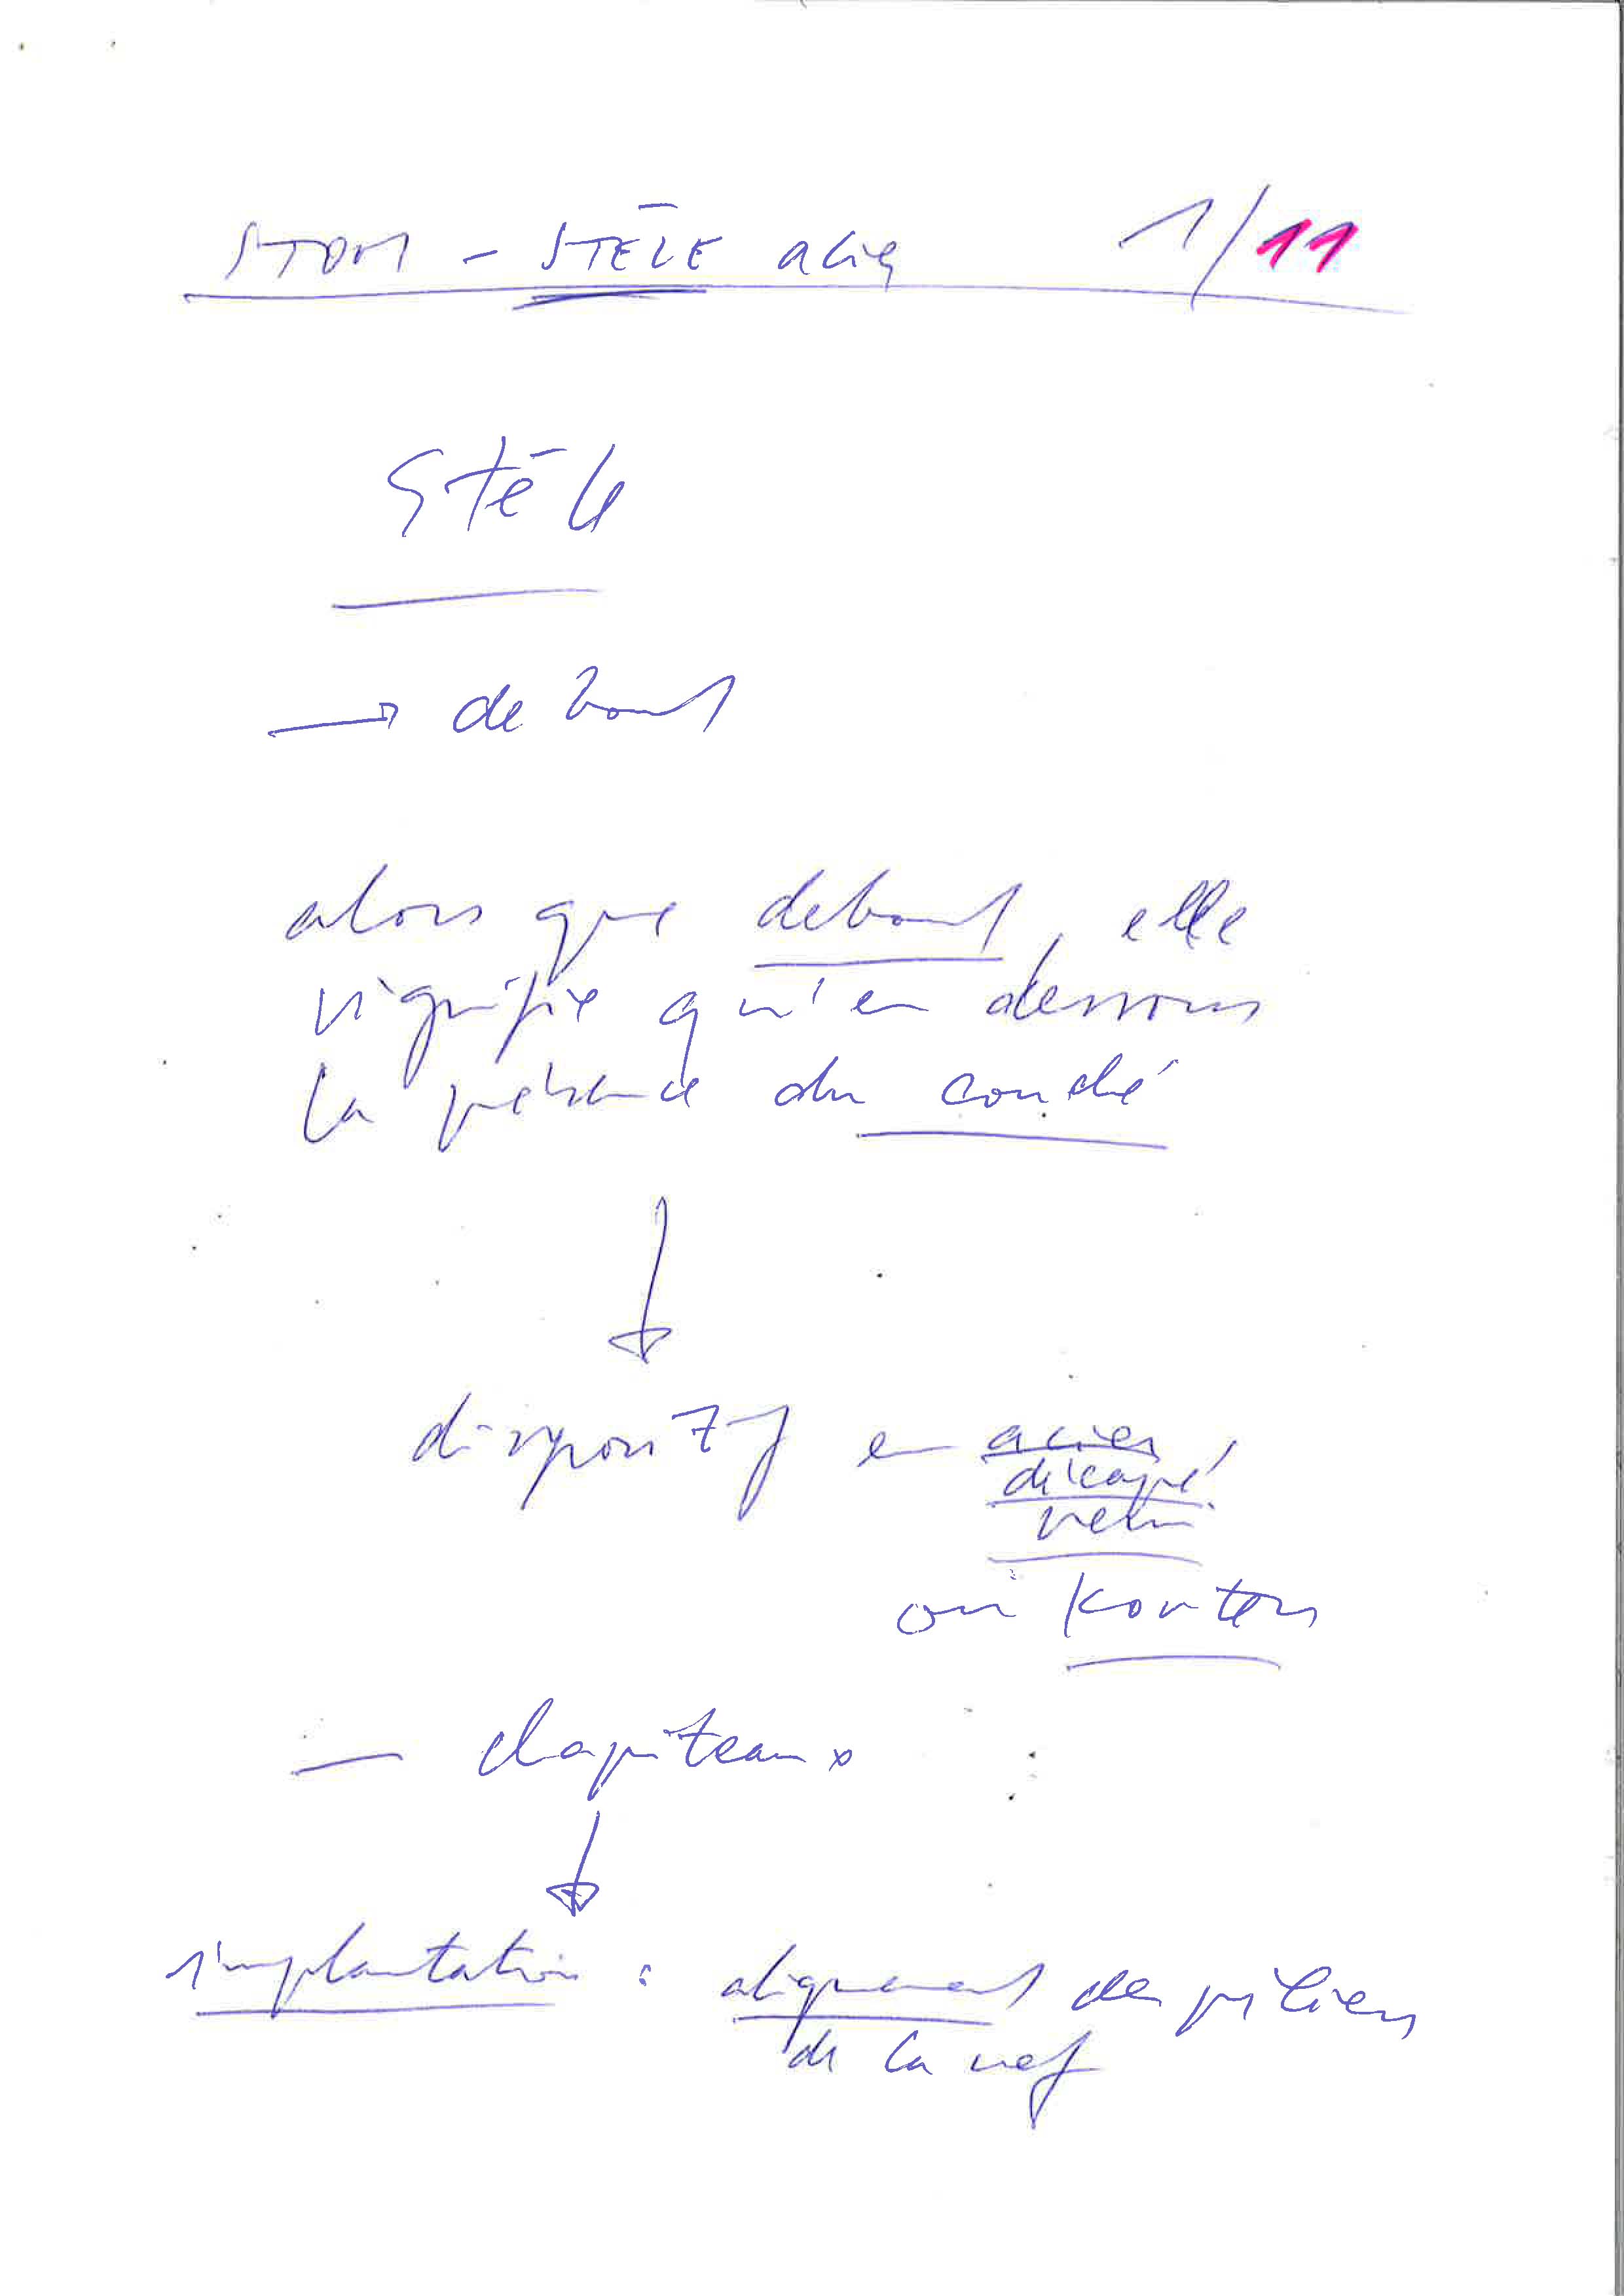 STOM - STÈLE acier 1/11
Stèle
→ debout
alors que debout, elle
signifie qu'en dessous
la présence du couché
dispositif en acier
décapé
verni
ou Korten
— chapiteaux
implantation : alignement des piliers
de la nef